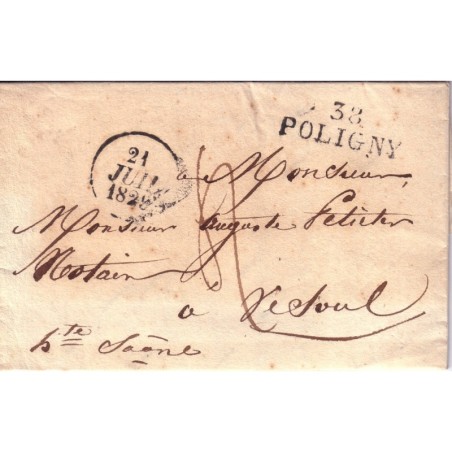 38
POLIGNY
21
JUIL
1829
a Monsieur,
Monsieur auguste
Notaire
a Vesoul
hte Saône